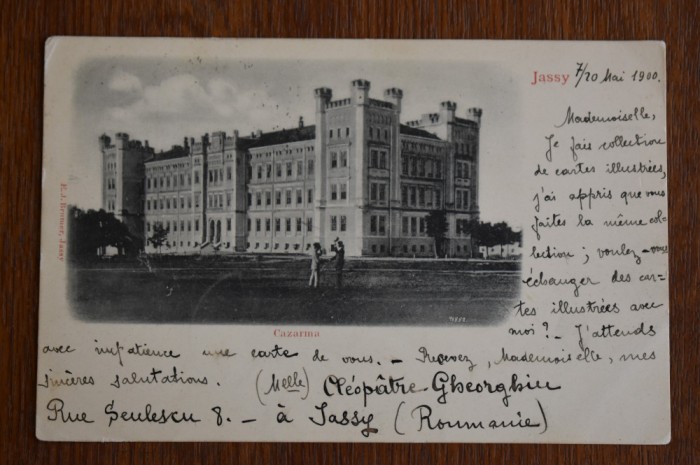 Jassy 7/20 Mai 1900.
Mademoiselle,
Je fais collection
de cartes illustrées,
j'ai appris que vous
faites la même col-
lection ; voulez-vous
échanger des car-
tes illustrées avec
moi ? - J'attends
avec impatience une carte de vous. - Recevez, Mademoiselle, mes
sincères salutations. (Melle) Cléopâtre Gheorghiu
Rue Șeulescu 8. - à Jassy (Roumanie)
Cazarma
Jassy